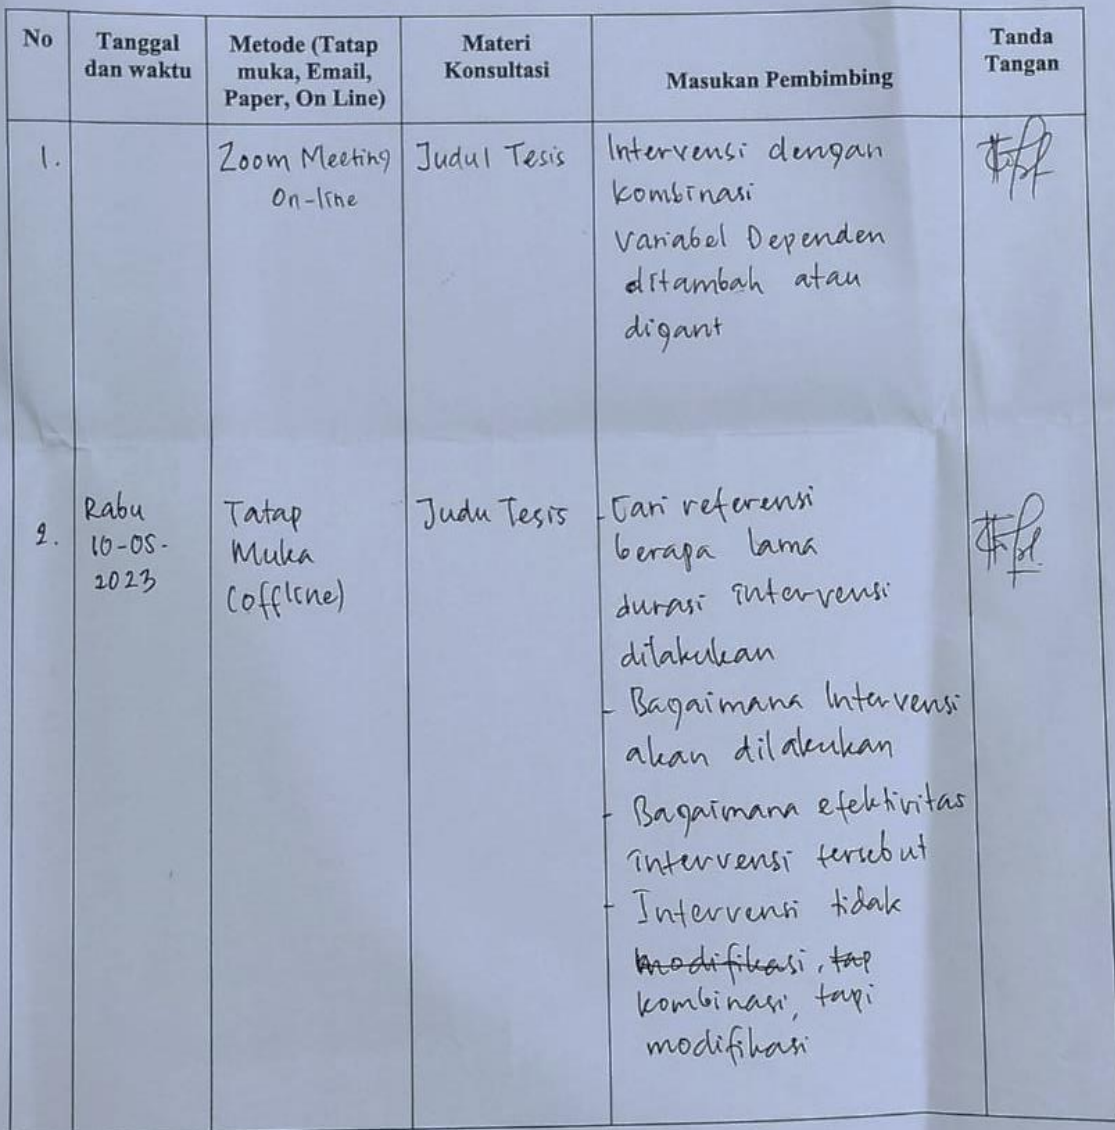 No
Tanggal
dan waktu
Metode (Tatap
muka, Email,
Paper, On Line)
Materi
Konsultasi
Masukan Pembimbing
Tanda
Tangan
1.
Zoom Meeting
On-line
Judul Tesis
Intervensi dengan
kombinasi
Variabel Dependen
ditambah atau
digant
2.
Rabu
10-05-
2023
Tatap
Muka
(offline)
Judu Tesis
- Cari referensi
berapa lama
durasi intervensi
dilakukan
- Bagaimana Intervensi
akan dilakukan
- Bagaimana efektivitas
intervensi tersebut
- Intervensi tidak
modifikasi, tap
kombinasi, tapi
modifikasi